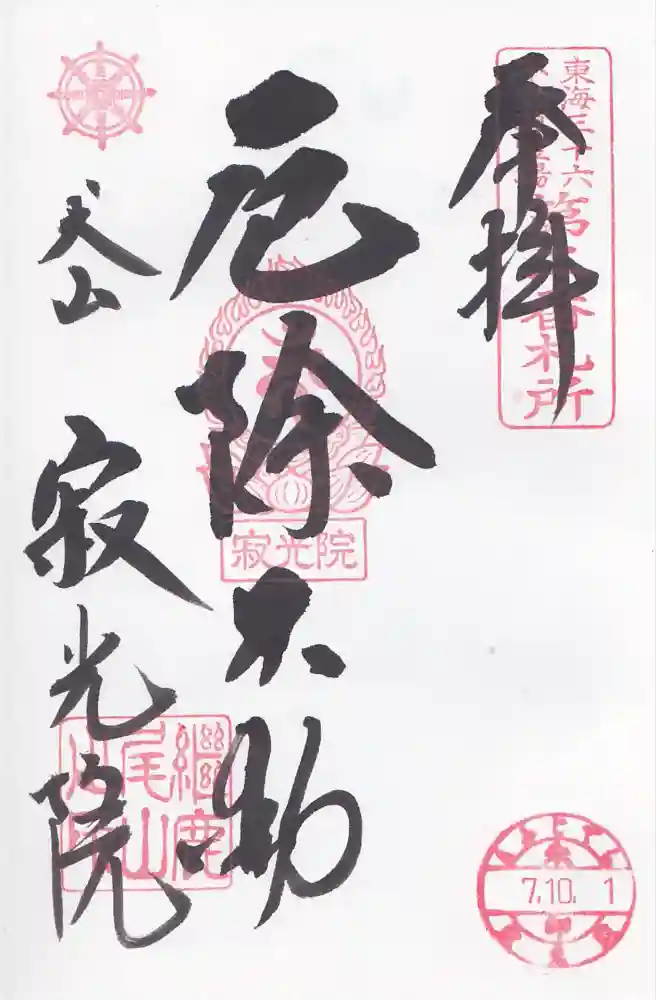 奉拝
東海三十六
第
番札所
厄除不動
寂光院
犬山
寂光院
継鹿
尾山
7.10. 1